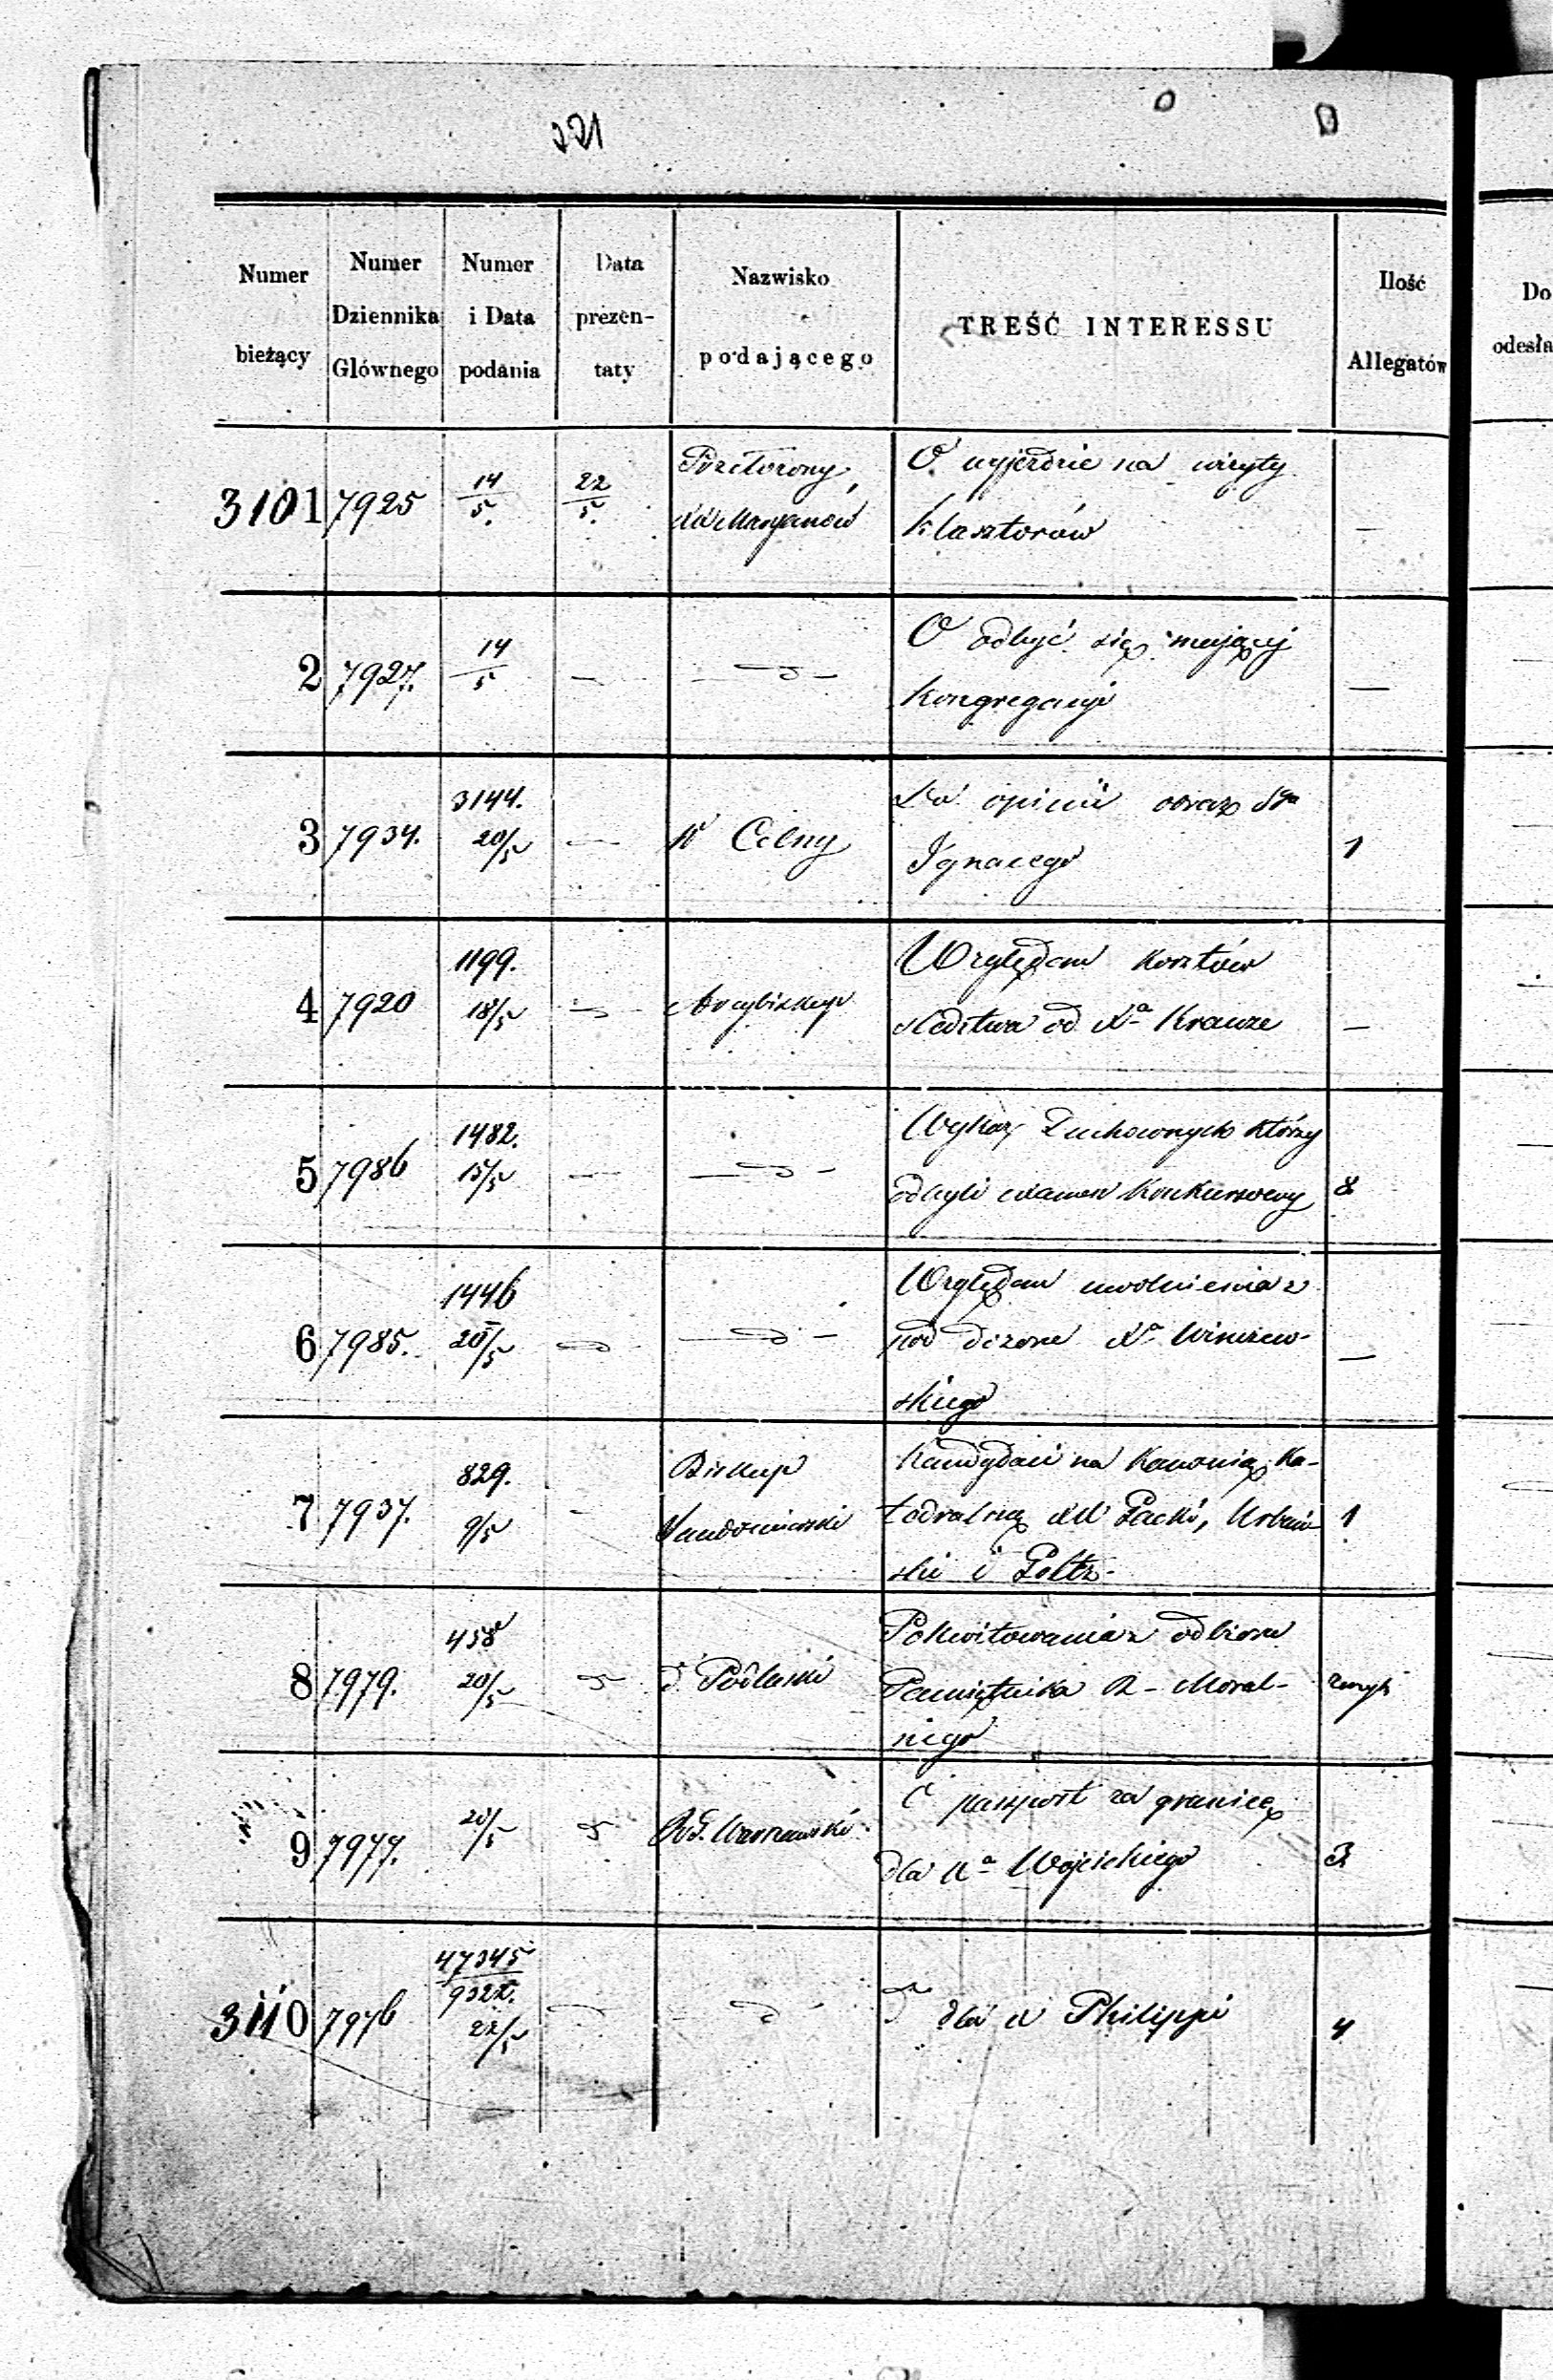 221
Numer bieżący
Numer Dziennika Głównego
Numer i Data podania
Data prezen- taty
Nazwisko podającego
TREŚĆ INTERESSU
Ilość Allegatów
Do
odesła
3101 7925 14/5. 22/5. Przełożony
XX Maryanów
O wyjezdzie na wizyty
Klasztorów —
2 7927. 14/5 — — d —
O odbyć się mającej
Kongregacyi —
3 7934. 3144. 20/5 — N Celny
Do opinii obraz Sgo
Ignacego 1
4 7920 1199. 18/5 — Arcybiskup
Względem kosztów
sledztwa od Xa Krauze —
5 7986 1482. 15/5 — — d —
Wykaz Duchownych którzy
odbyli examen Konkursowy 8
6 7985. 1446 20/5 d — d —
Względem uwolnienia z
pod dozoru Xa Winszew-
skiego —
7 7937. 829. 9/5 — Biskup
Sandomierski
Kandydaci na Kanonią Ka-
tedralną XX Packi, Urbań-
ski i Poltz- 1
8 7979. 458 20/5 d d. Podlaski
Pokwitowania z odbioru
Pamiętnika R- Moral-
nego
9 7977. 20/5 d R.G. Warszawski
O paszport za granicę
dla Xa Wojcickiego 3
3110 7976 47345/9322. 22/5 — d
d dla X Philippi 4